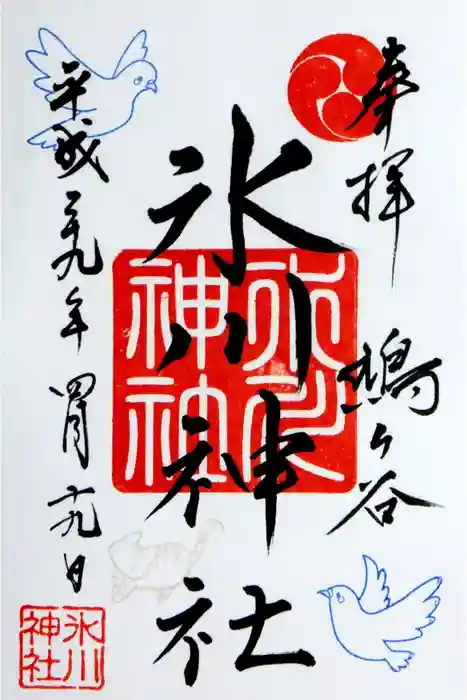 奉拝
鳩ヶ谷
氷川神社
氷川
神社
平成二十九年四月十九日
氷川
神社